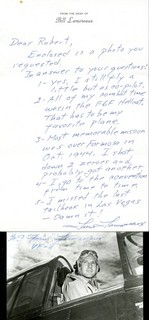 FROM THE DESK OF
Bill Lawrence
Dear Robert,
Enclosed is a photo you
requested.
In answer to your questions:
1- yes, I still fly a
little but as co-pilot.
2- All of my combat time
was in the F6F Hellcat,
That has to be my
favorite plane.
3- Most memorable mission
was over Formosa in
Oct 1944. I shot
down 2 zeros and
probably got another.
4- I go to the conventions
from time to time
5- I missed the last
tailhook in Las Vegas
- Damn it!